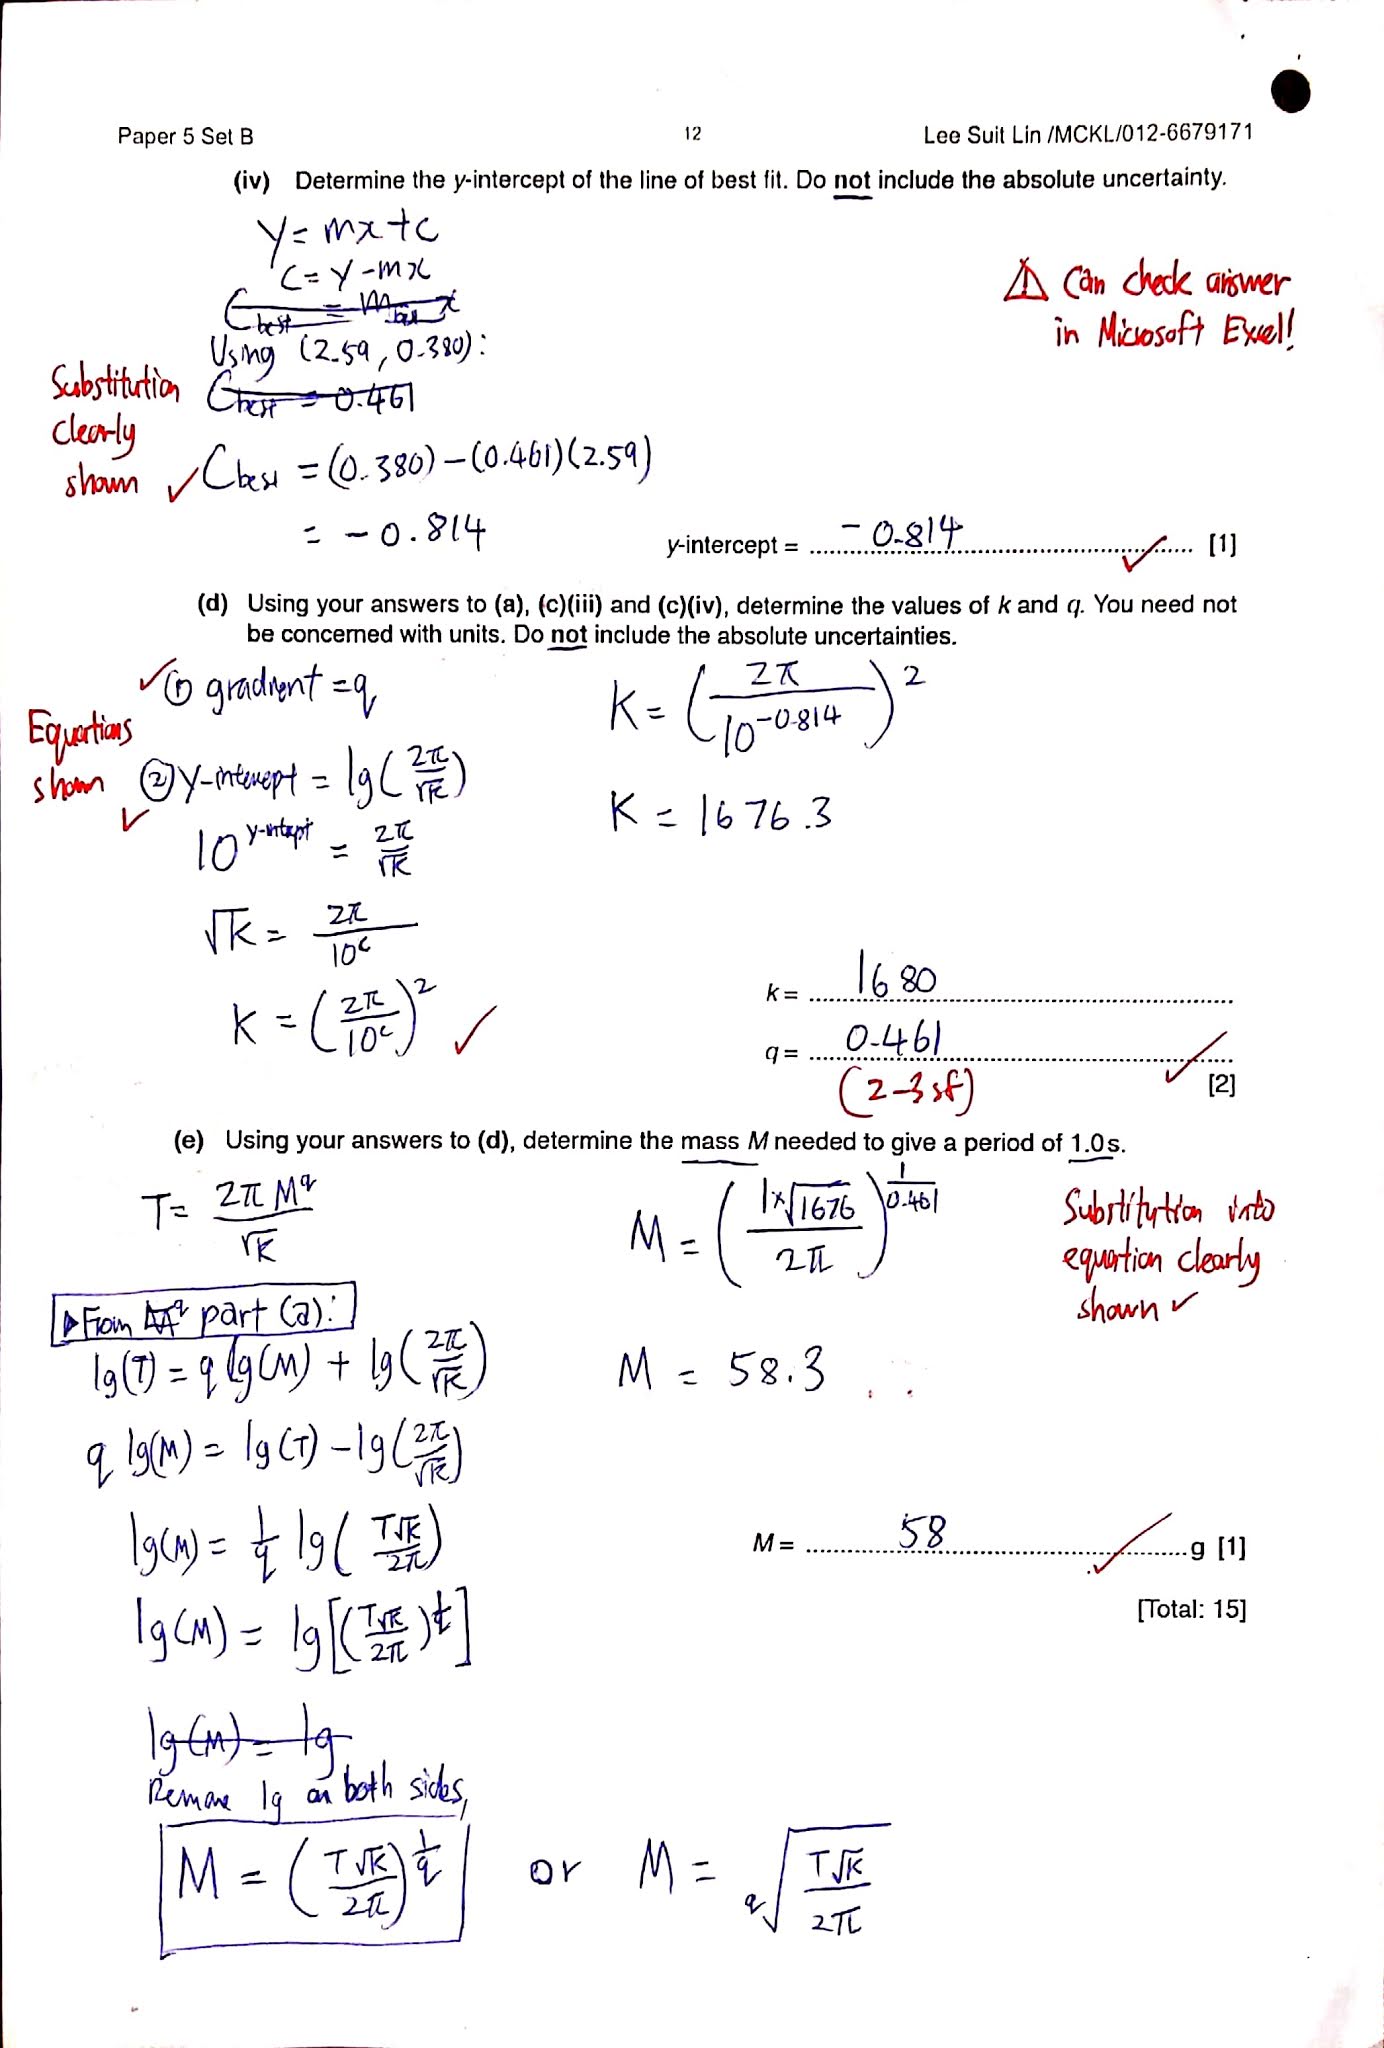 Paper 5 Set B 12 Lee Suit Lin /MCKL/012-6679171
(iv) Determine the y-intercept of the line of best fit. Do not include the absolute uncertainty.
y = mx + c
c = y - mx
C best = m best x
Using (2.59, 0.380):
C best = 0.461
C best = (0.380) - (0.461)(2.59)
= -0.814
Substitution
clearly
shown ✓
⚠ Can check answer
in Microsoft Excel!
y-intercept = -0.814 ✓ [1]
(d) Using your answers to (a), (c)(iii) and (c)(iv), determine the values of k and q. You need not
be concerned with units. Do not include the absolute uncertainties.
✓ ① gradient = q
Equations
shown ✓
② y-intercept = lg(2π/√k)
10^y-intcpt = 2π/√k
√k = 2π/10^c
k = (2π/10^c)^2 ✓
K = (2π/10^-0.814)^2
K = 1676.3
k = 1680
q = 0.461 ✓
(2-3 sf) [2]
(e) Using your answers to (d), determine the mass M needed to give a period of 1.0 s.
T = 2πM^q/√k
▶ From part (a):
lg(T) = q lg(M) + lg(2π/√k)
q lg(M) = lg(T) - lg(2π/√k)
lg(M) = 1/q lg(T√k/2π)
lg(M) = lg[(T√k/2π)^1/q]
lg(M) = lg
Remove lg on both sides,
M = (T√k/2π)^1/q or M = q√(T√k/2π)
M = (1×√1676/2π)^1/0.461
M = 58.3
Substitution into
equation clearly
shown ✓
M = 58 ✓ g [1]
[Total: 15]